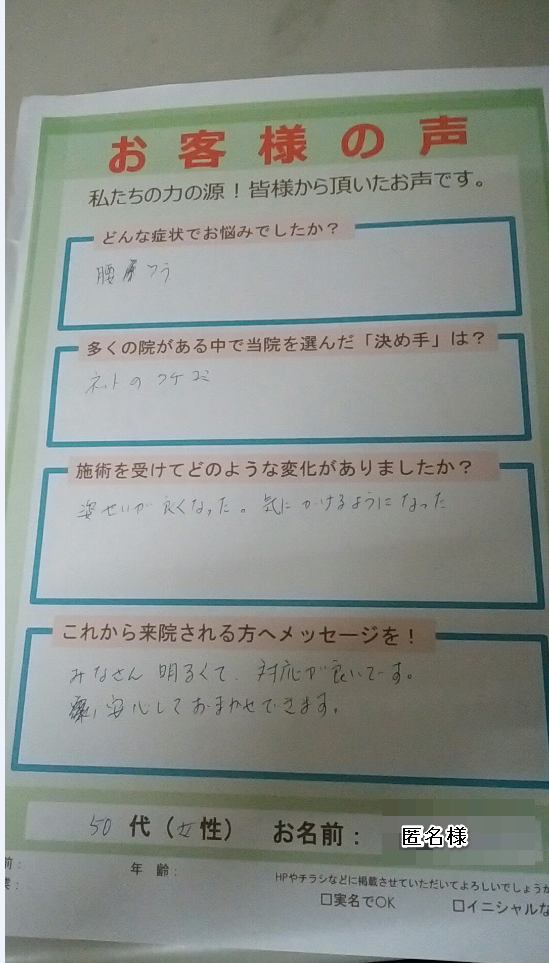 お客様の声
私たちの力の源!皆様から頂いたお声です。
どんな症状でお悩みでしたか?
腰
多くの院がある中で当院を選んだ「決め手」は?
ネットのクチコミ
施術を受けてどのような変化がありましたか?
姿せいが良くなった。気にかけるようになった
これから来院される方へメッセージを!
みなさん明るくて、対応が良いです。
安心しておまかせできます。
50代(女性) お名前: 匿名様
前:
年齢:
業:
HPやチラシなどに掲載させていただいてよろしいでしょうか
□実名でOK □イニシャルな